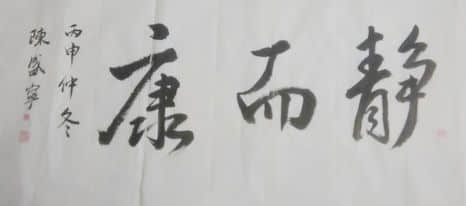 静而康
丙申仲冬
陳盛寧